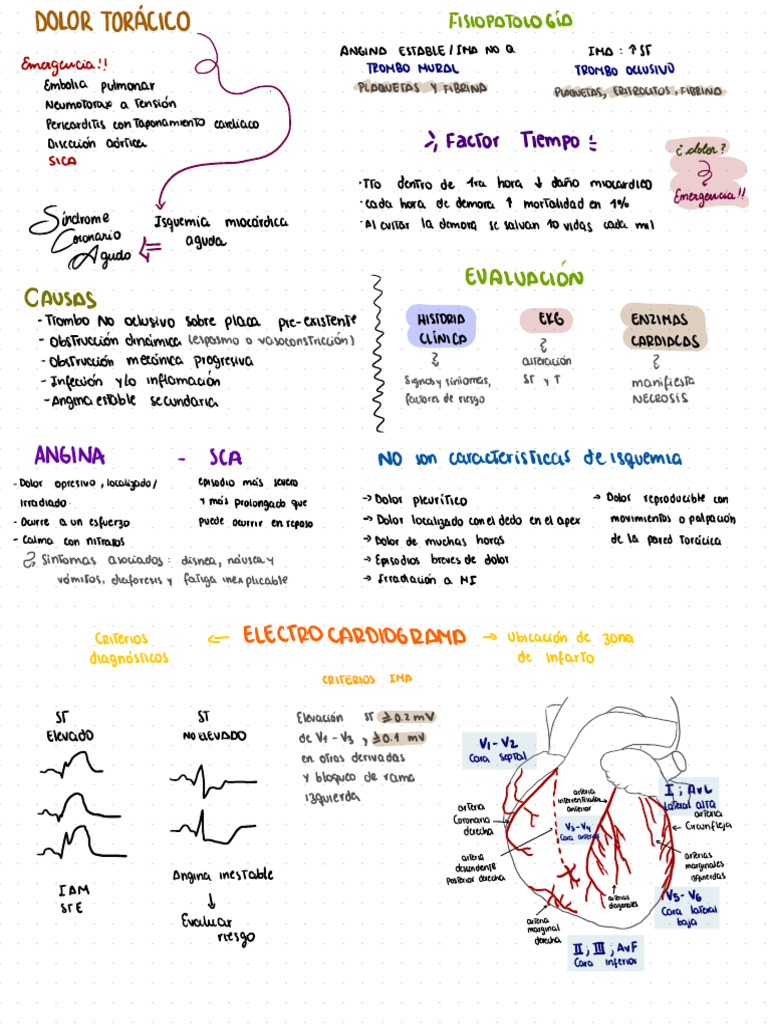 DOLOR TORÁCICO
Emergencia!!
Embolia pulmonar
Neumotorax a Tensión
Pericarditis con taponamiento cardíaco
Disección aórtica
SICA
Síndrome
Coronario
Agudo
Isquemia miocárdica
aguda
FISIOPATOLOGÍA
ANGINA ESTABLE / IMA NO Q
TROMBO MURAL
PLAQUETAS Y FIBRINA
IMA: ↑ ST
TROMBO OCLUSIVO
PLAQUETAS, ERITROCITOS, FIBRINA
Factor Tiempo
· TTO dentro de 1ra hora ↓ daño miocárdico
· cada hora de demora ↑ mortalidad en 1%
· Al evitar la demora se salvan 10 vidas cada mil
¿dolor?
Emergencia!!
CAUSAS
- Trombo No oclusivo sobre placa pre-existente
- Obstrucción dinámica (espasmo o vasoconstricción)
- Obstrucción mecánica progresiva
- Infección y/o inflamación
- Angina estable secundaria
EVALUACIÓN
HISTORIA
CLÍNICA
Signos y síntomas,
factores de riesgo
EKG
alteración
ST y T
ENZIMAS
CARDIACAS
manifiesta
NECROSIS
ANGINA - SCA
- Dolor opresivo, localizado/
irradiado
- Ocurre a un esfuerzo
- Calma con nitratos
episodio más severo
y más prolongado que
puede ocurrir en reposo
Síntomas asociados: disnea, náusea y
vómitos, diaforesis y fatiga inexplicable
NO son características de isquemia
→ Dolor pleurítico
→ Dolor localizado con el dedo en el apex
→ Dolor de muchas horas
→ Episodios breves de dolor
→ Irradiación a MI
→ Dolor reproducible con
movimientos o palpación
de la pared Torácica
Criterios
diagnósticos
← ELECTROCARDIOGRAMA →
Ubicación de zona
de infarto
ST
Elevado
IAM
STE
ST
NO ELEVADO
Angina inestable
↓
Evaluar
riesgo
CRITERIOS IMA
Elevación ST ≥0.2 mV
de V1 - V3, y ≥0.1 mV
en otras derivadas
y bloqueo de rama
izquierda
V1-V2
Cara septal
arteria
Coronaria
derecha
arteria
descendente
Posterior derecha
arteria
marginal
derecha
arteria
interventricular
anterior
V3-V4
Cara anterior
arterias
diagonales
I; AvL
lateral alta
arteria
← Circunfleja
arterias
marginales
izquierdas
V5-V6
Cara lateral
baja
II; III; AvF
Cara inferior